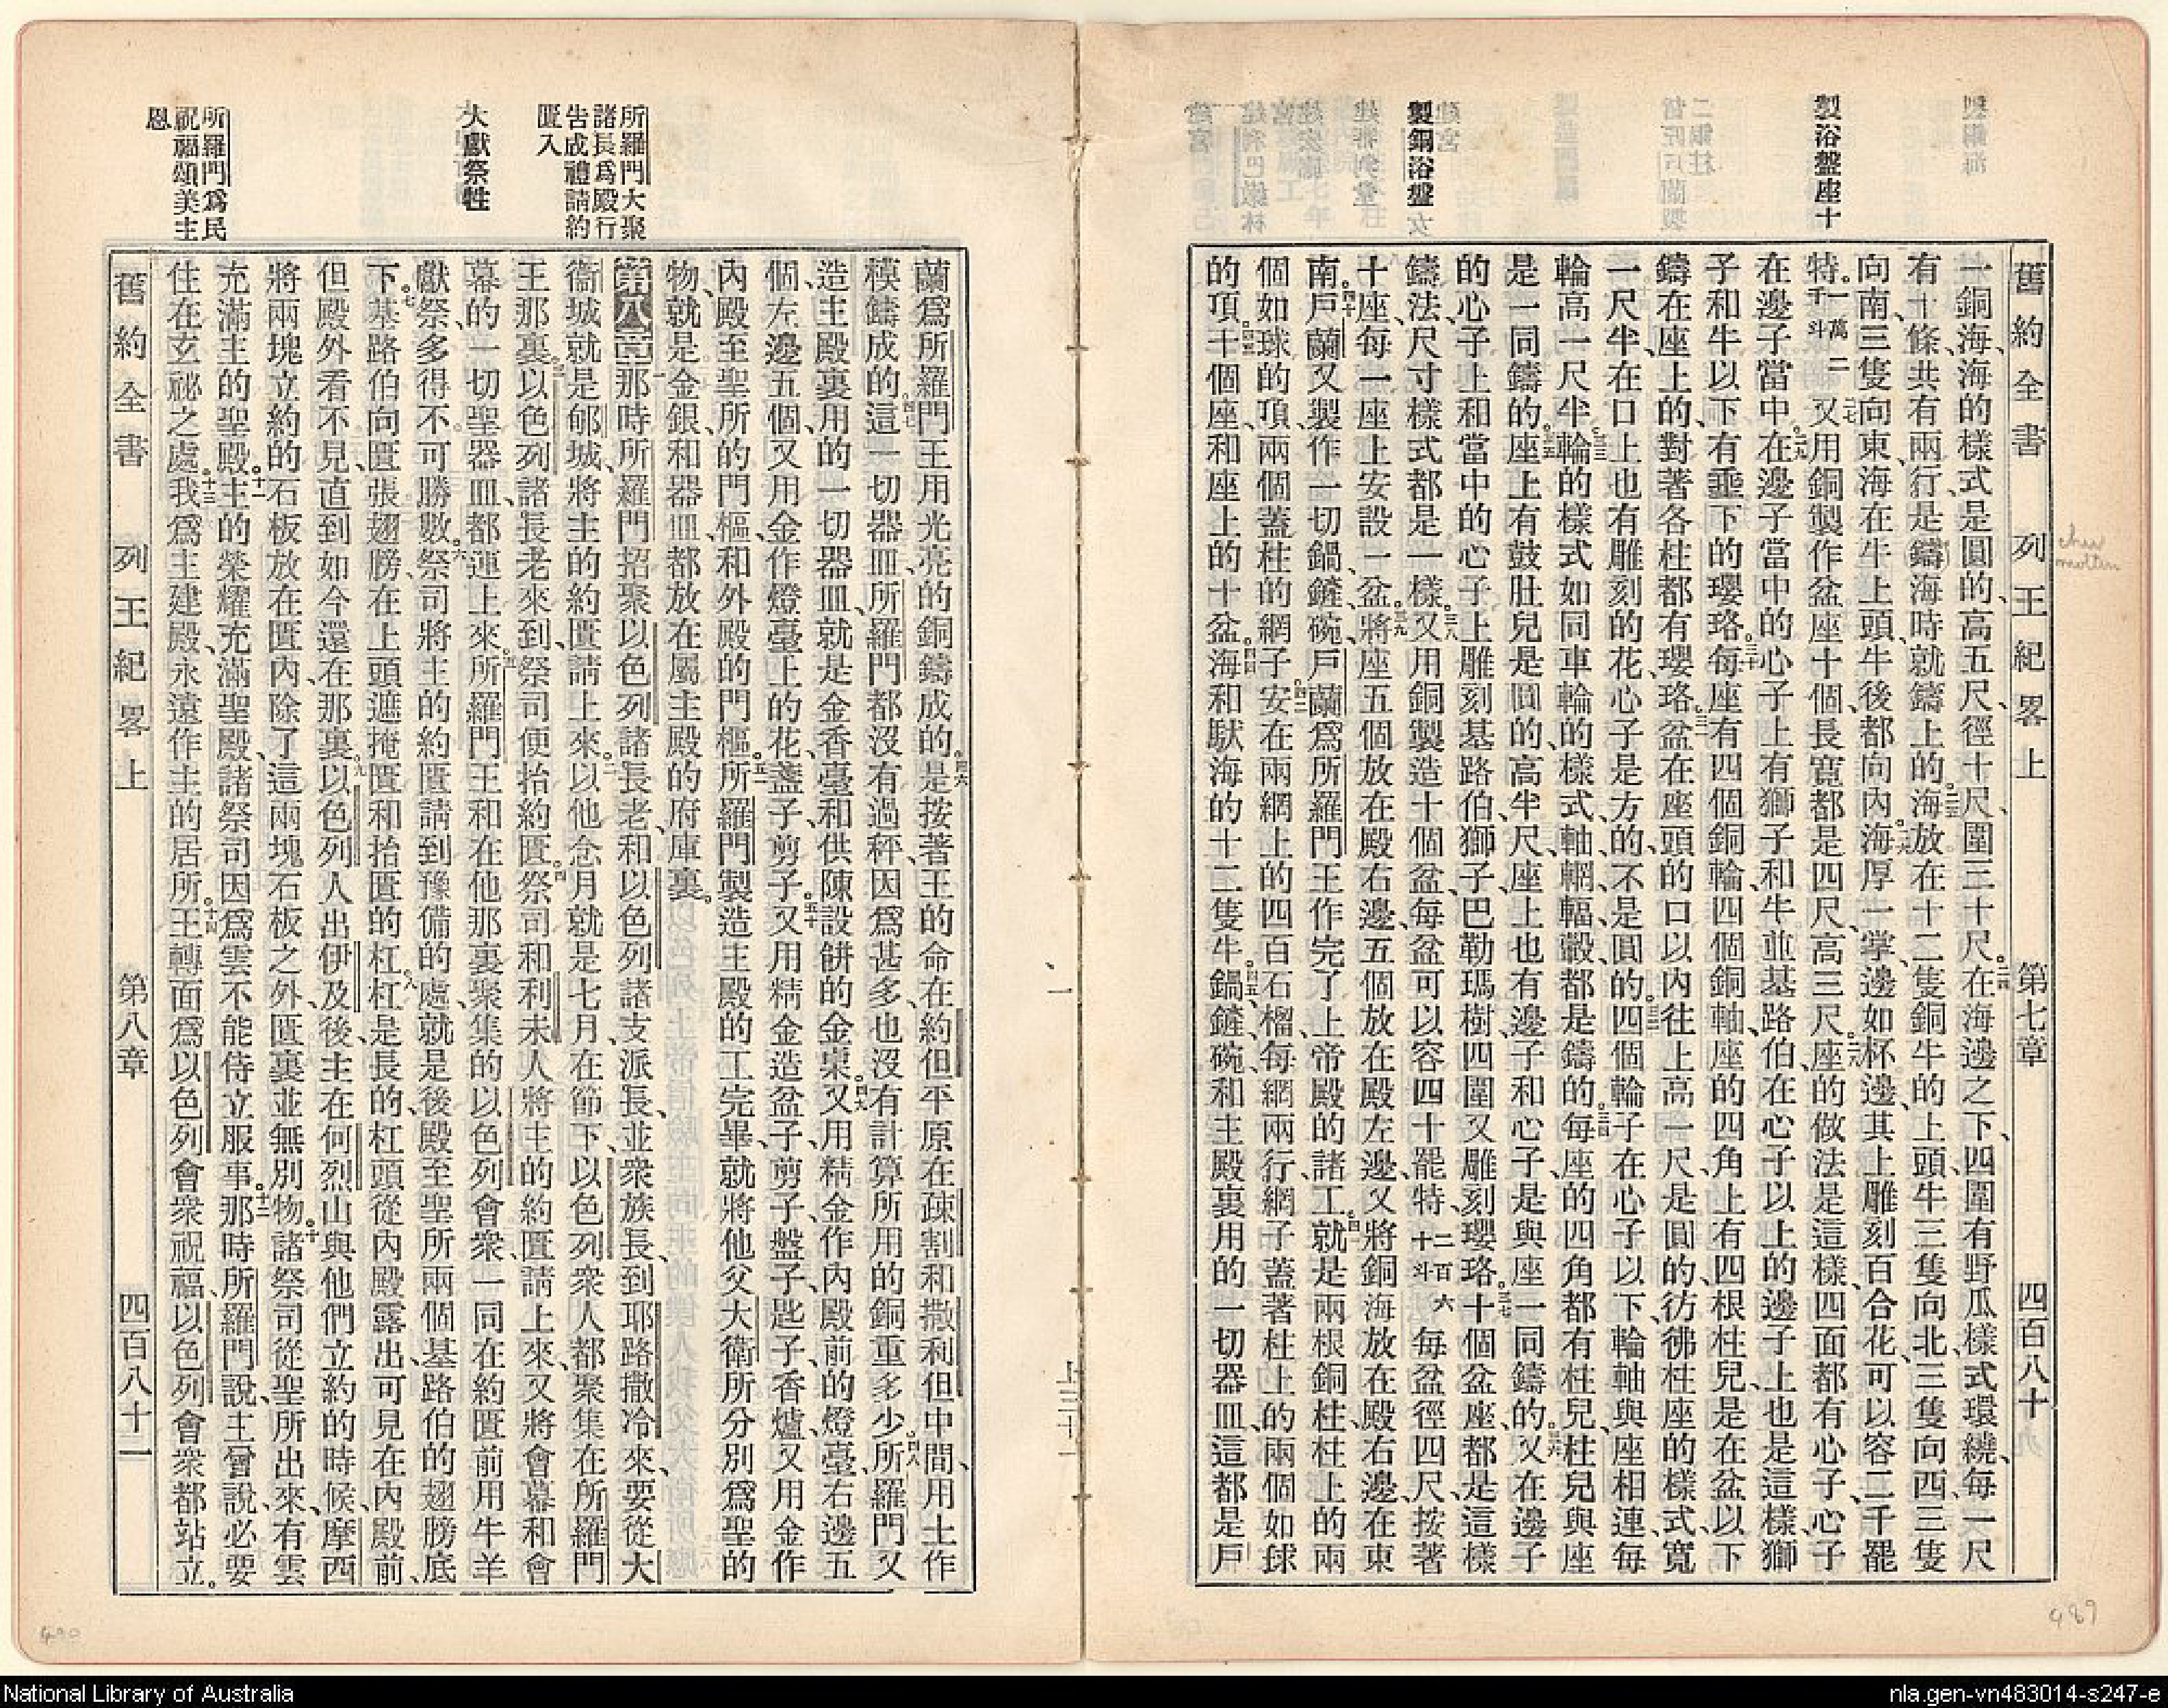 製浴盤座十
製銅浴盤
舊約全書 列王紀畧上 第七章 四百八十
一銅海、海的樣式是圓的、高五尺、徑十尺、圍三十尺。二四在海邊之下、四圍有野瓜樣式環繞、每一尺
有十條、共有兩行、是鑄海時就鑄上的。二五海放在十二隻銅牛的上頭、牛三隻向北、三隻向西、三隻
向南、三隻向東、海在牛上頭、牛後都向內。二六海厚一掌、邊如杯邊、其上雕刻百合花、可以容二千罷
特。一萬二千斗二七又用銅製作盆座十個、長寬都是四尺、高三尺。二八座的做法是這樣、四面都有心子、心子
在邊子當中。二九在邊子當中的心子上有獅子和牛並基路伯、在心子以上的邊子上也是這樣、獅
子和牛以下有垂下的瓔珞。三十每座有四個銅輪、四個銅軸、座的四角上有四根柱兒、是在盆以下
鑄在座上的、對著各柱都有瓔珞。三一盆在座頭的口以內往上高一尺、是圓的、彷彿柱座的樣式、寬
一尺半、在口上也有雕刻的花、心子是方的、不是圓的。三二四個輪子在心子以下、輪軸與座相連、每
輪高一尺半。三三輪的樣式如同車輪的樣式、軸輞輻轂都是鑄的。三四每座的四角都有柱兒、柱兒與座
是一同鑄的。三五座上有鼓肚兒是圓的、高半尺、座上也有邊子和心子、是與座一同鑄的。三六又在邊子
的心子上和當中的心子上雕刻基路伯、獅子、巴勒瑪樹、四圍又雕刻瓔珞。三七十個盆座、都是這樣
鑄法、尺寸樣式都是一樣。三八又用銅製造十個盆、每盆可以容四十罷特、二百六十斗每盆徑四尺、按著
十座、每一座上安設一盆。三九將座五個放在殿右邊、五個放在殿左邊、又將銅海放在殿右邊、在東
南。四十戶蘭又製作一切鍋、鏟、碗、戶蘭爲所羅門王作完了上帝殿的諸工。四一就是兩根銅柱、柱上的兩
個如球的頂、兩個蓋柱的網子。四二安在兩網上的四百石榴、每網兩行、網子蓋著柱上的兩個如球
的頂。四三十個座、和座上的十盆。四四海和馱海的十二隻牛。四五鍋、鏟、碗、和主殿裏用的一切器皿、這都是戶
蘭爲所羅門王用光亮的銅鑄成的。四六是按著王的命在約但平原、在疎割和撒利但中間、用土作
模鑄成的。四七這一切器皿、所羅門都沒有過秤、因爲甚多、也沒有計算所用的銅重多少。四八所羅門又
造主殿裏用的一切器皿、就是金香臺、和供陳設餅的金棹。四九又用精金作內殿前的燈臺、右邊五
個、左邊五個、又用金作燈臺上的花、盞子、剪子。五十又用精金造盆子、剪子、盤子、匙子、香爐、又用金作
內殿至聖所的門樞、和外殿的門樞。五一所羅門製造主殿的工完畢、就將他父大衛所分別爲聖的
物、就是金銀和器皿、都放在屬主殿的府庫裏。
第八章一那時所羅門招聚以色列諸長老、和以色列諸支派長、並衆族長、到耶路撒冷來、要從大
衞城就是郇城、將主的約匱請上來。二以他念月、就是七月、在節下、以色列衆人都聚集在所羅門
王那裏。三以色列諸長老來到、祭司便抬約匱。四祭司和利未人將主的約匱請上來、又將會幕和會
幕的一切聖器皿、都運上來。五所羅門王和在他那裏聚集的以色列會衆、一同在約匱前用牛羊
獻祭、多得不可勝數。六祭司將主的約匱請到豫備的處、就是後殿至聖所兩個基路伯的翅膀底
下。七基路伯向匱張翅膀、在上頭遮掩匱和抬匱的杠。八杠是長的、杠頭從內殿露出、可見在內殿前、
但殿外看不見、直到如今還在那裏。九以色列人出伊及後、主在何烈山與他們立約的時候、摩西
將兩塊立約的石板放在匱內、除了這兩塊石板之外、匱裏並無別物。十諸祭司從聖所出來、有雲
充滿主的聖殿。十一主的榮耀充滿聖殿、諸祭司因爲雲不能侍立服事。十二那時所羅門說、主曾說、必要
住在玄祕之處。十三我爲主建殿、永遠作主的居所。十四王轉面爲以色列會衆祝福、以色列會衆都站立。
舊約全書 列王紀畧上 第八章 四百八十一
所羅門大聚
諸長爲殿行
告成禮請約
匱入
大獻祭牲
所羅門爲民
祝福頌美主
恩
chu
molten
489
490
National Library of Australia
nla.gen-vn483014-s247-e